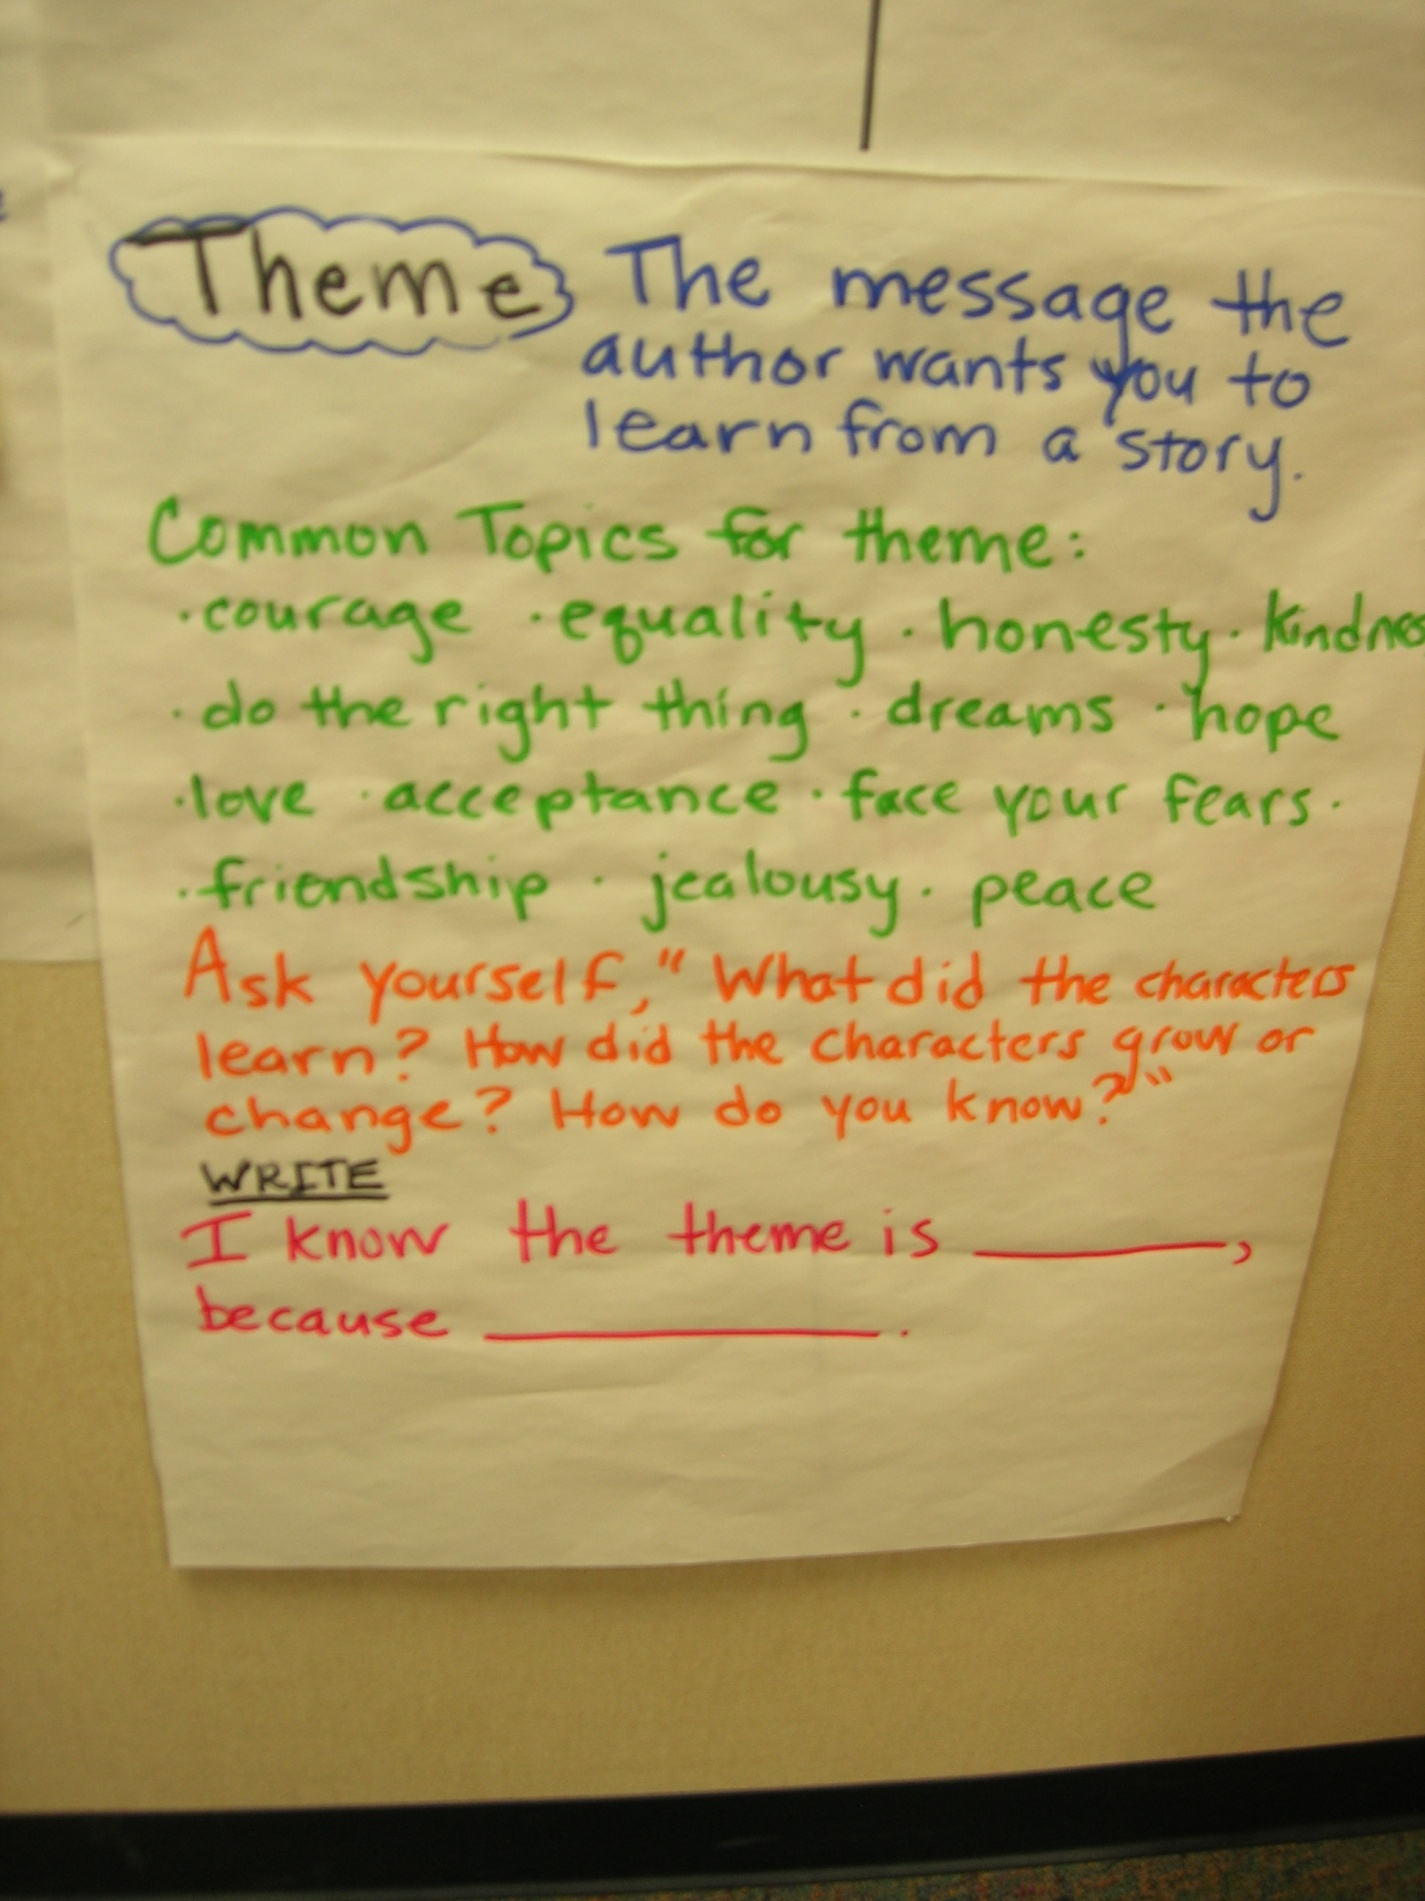 Theme The message the
author wants you to
learn from a story.
Common Topics for theme:
·courage ·equality ·honesty ·kindnes
·do the right thing ·dreams ·hope
·love ·acceptance ·face your fears·
·friendship ·jealousy ·peace
Ask yourself, "What did the characters
learn? How did the characters grow or
change? How do you know?"
WRITE
I know the theme is ________,
because ____________.